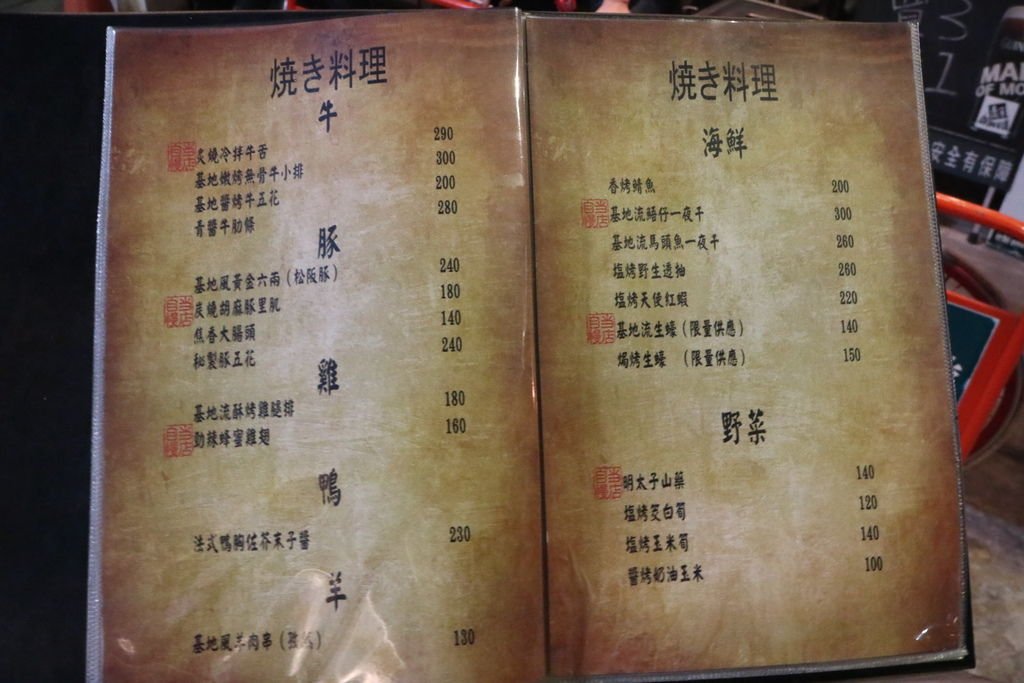 焼き料理
牛
當店自慢 炙燒冷拌牛舌 290
基地嫩烤無骨牛小排 300
基地醬烤牛五花 200
青醬牛肋條 280
豚
基地風黃金六兩(松阪豚) 240
當店自慢 炭燒胡麻豚里肌 180
焦香大腸頭 140
秘製豚五花 240
雞
基地流酥烤雞腿排 180
當店自慢 勁辣蜂蜜雞翅 160
鴨
法式鴨胸佐芥末子醬 230
羊
基地風羊肉串 130
焼き料理
海鮮
香烤鯖魚 200
當店自慢 基地流䱛仔一夜干 300
基地流馬頭魚一夜干 260
塩烤野生透抽 260
塩烤天使紅蝦 220
當店自慢 基地流生蠔(限量供應) 140
焗烤生蠔 (限量供應) 150
野菜
當店自慢 明太子山藥 140
塩烤茭白筍 120
塩烤玉米筍 140
醬烤奶油玉米 100
3
1
MAI
OF MO
安全有保障